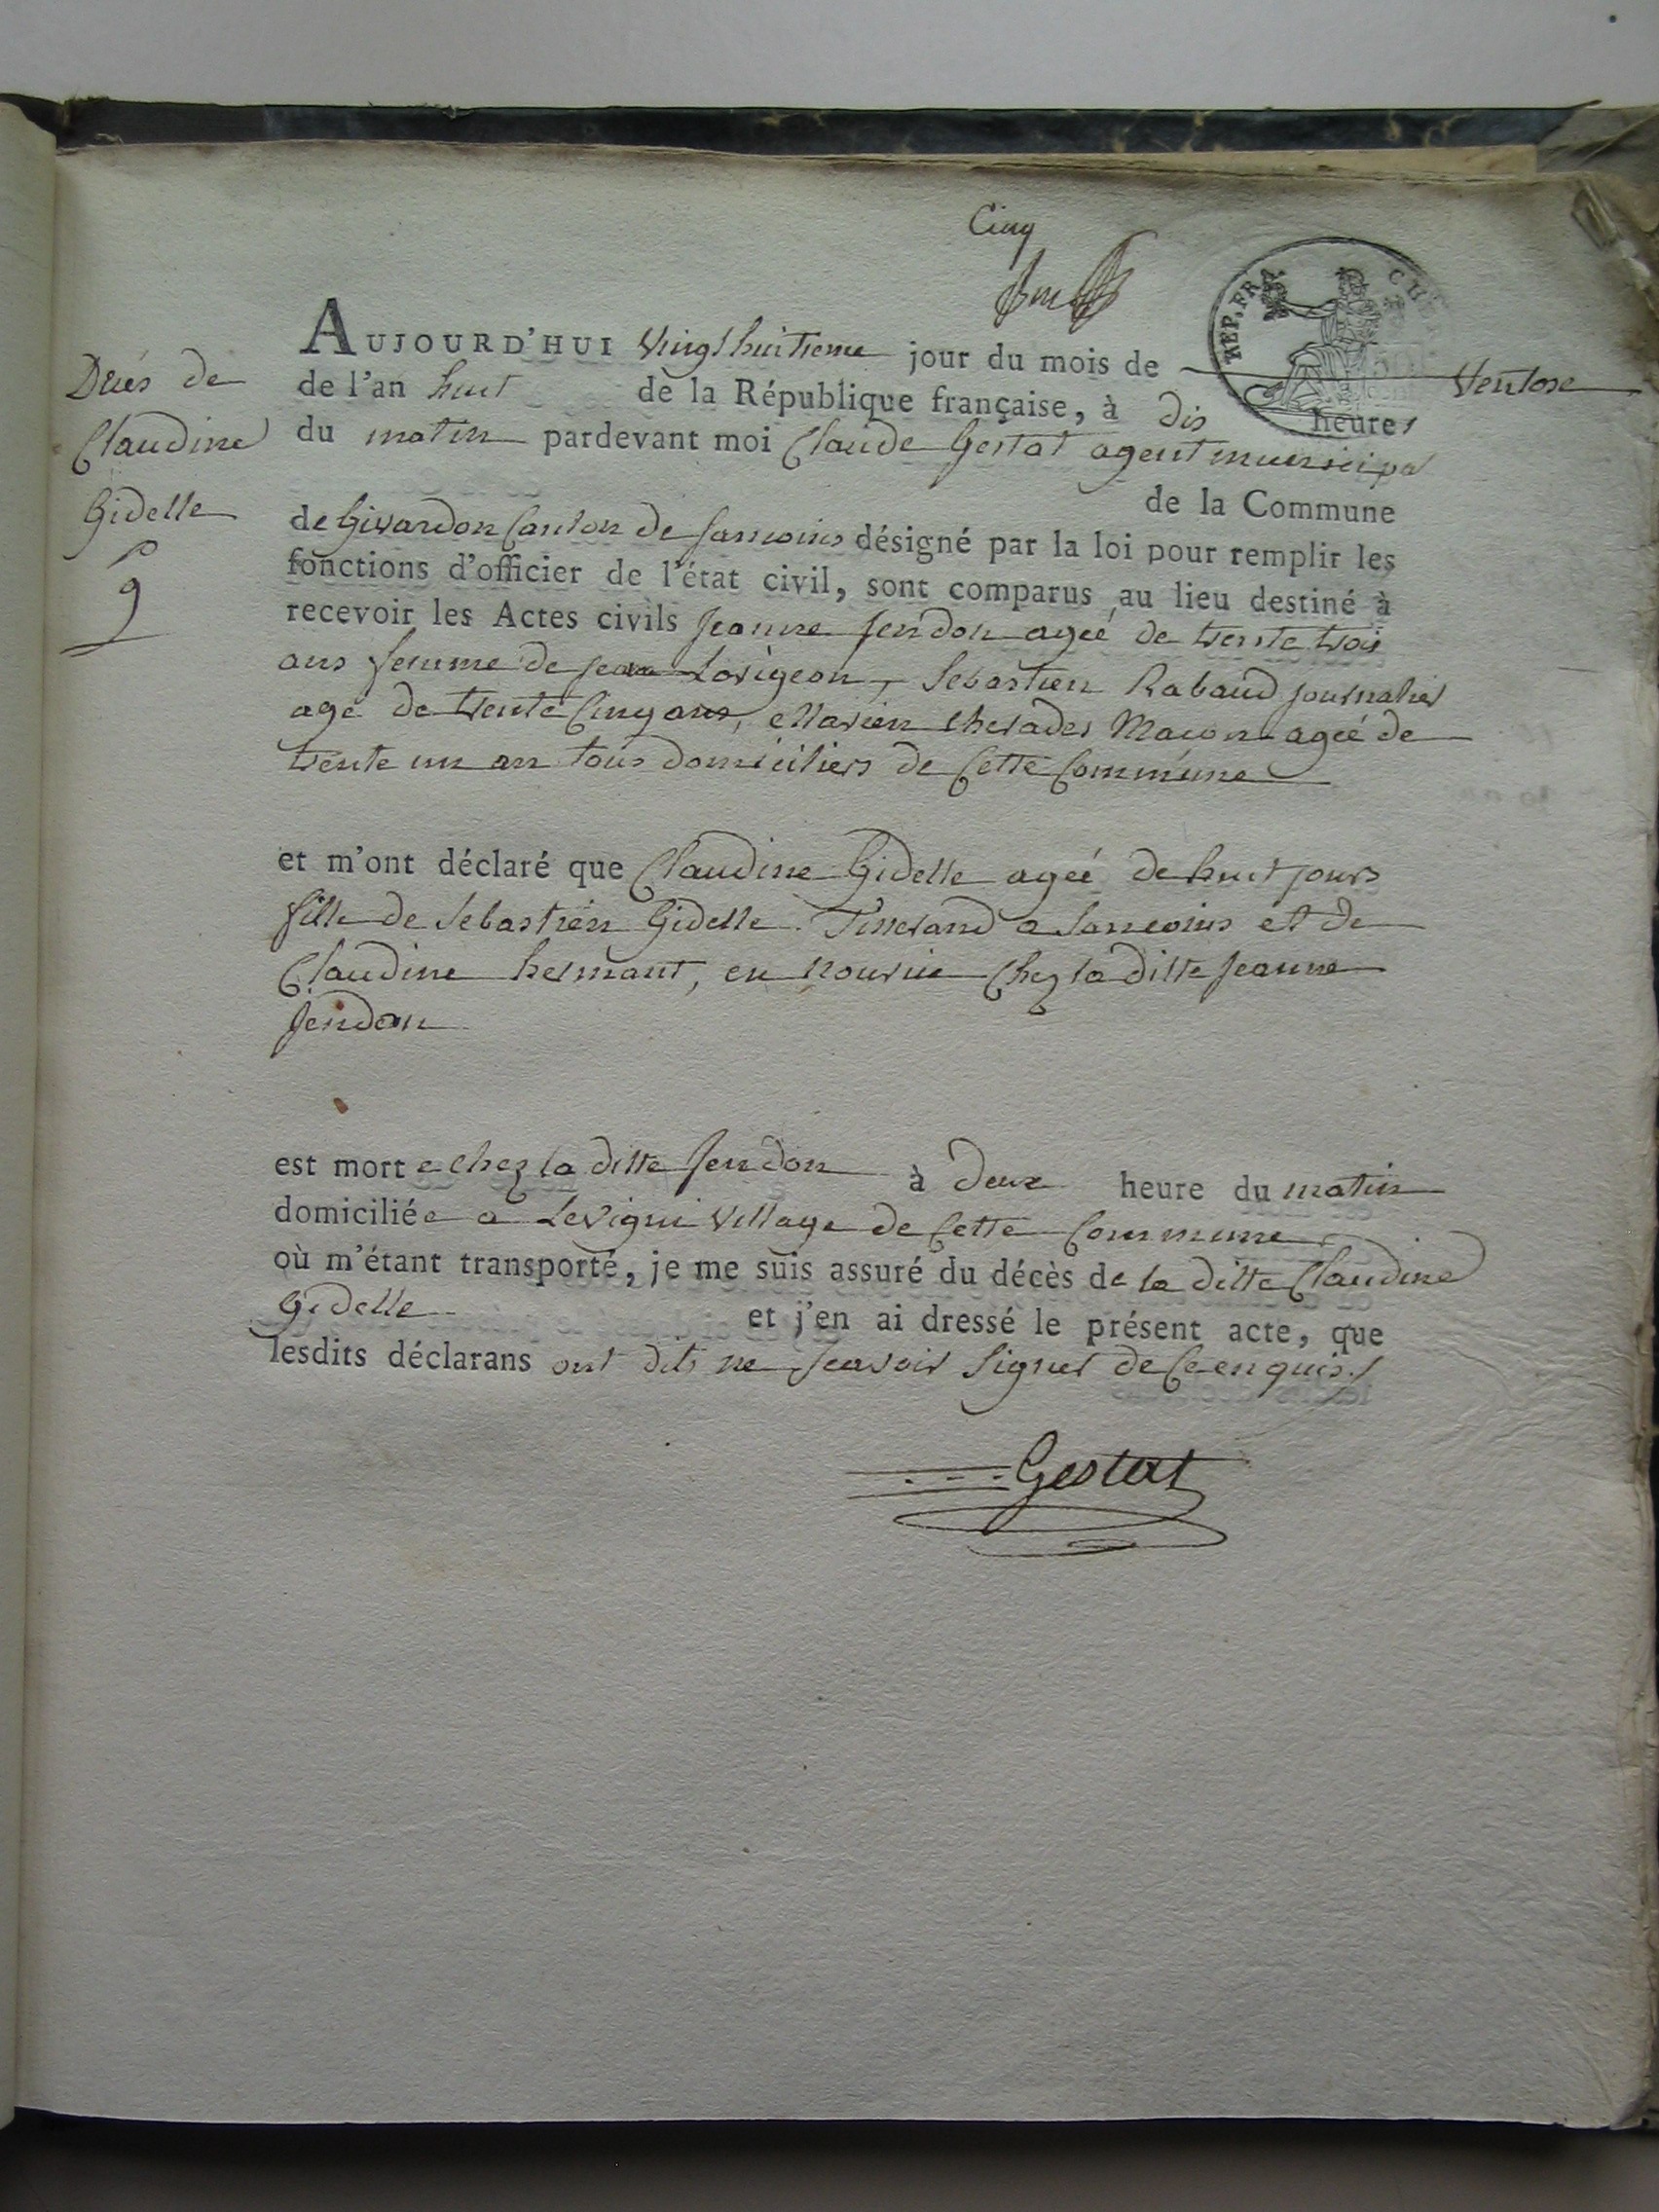 Cinq
REP. FRA
AUJOURD'HUI Vingt huitieme jour du mois de Ventose
de l'an huit de la République française, à dis heures
du matin pardevant moi Claude Gestat agent municipal
de la Commune
de Givardon Canton de Sancoins désigné par la loi pour remplir les
fonctions d'officier de l'état civil, sont comparus au lieu destiné à
recevoir les Actes civils Jeanne Jendon ageé de trente trois
ans femme de jean Lorigeon, Sebastien Rabaud journalier
age de trente Cinq ans, Marien Cherades Maçon ageé de
trente un an tous domiciliers de Cette Commune
et m'ont déclaré que Claudine Gidelle ageé de huit jours
fille de Sebastien Gidelle Tisserand a Sancoins et de
Claudine hermant, en nourice Chez la ditte Jeanne
Jendon
est morte chez la ditte Jendon à deux heure du matin
domiciliée a Levigni village de Cette Commune
où m'étant transporté, je me suis assuré du décès de la ditte Claudine
Gidelle et j'en ai dressé le présent acte, que
lesdits déclarans ont dits ne scavoir signer de Ce enquis
Gestat
Décés de
Claudine
Gidelle
9